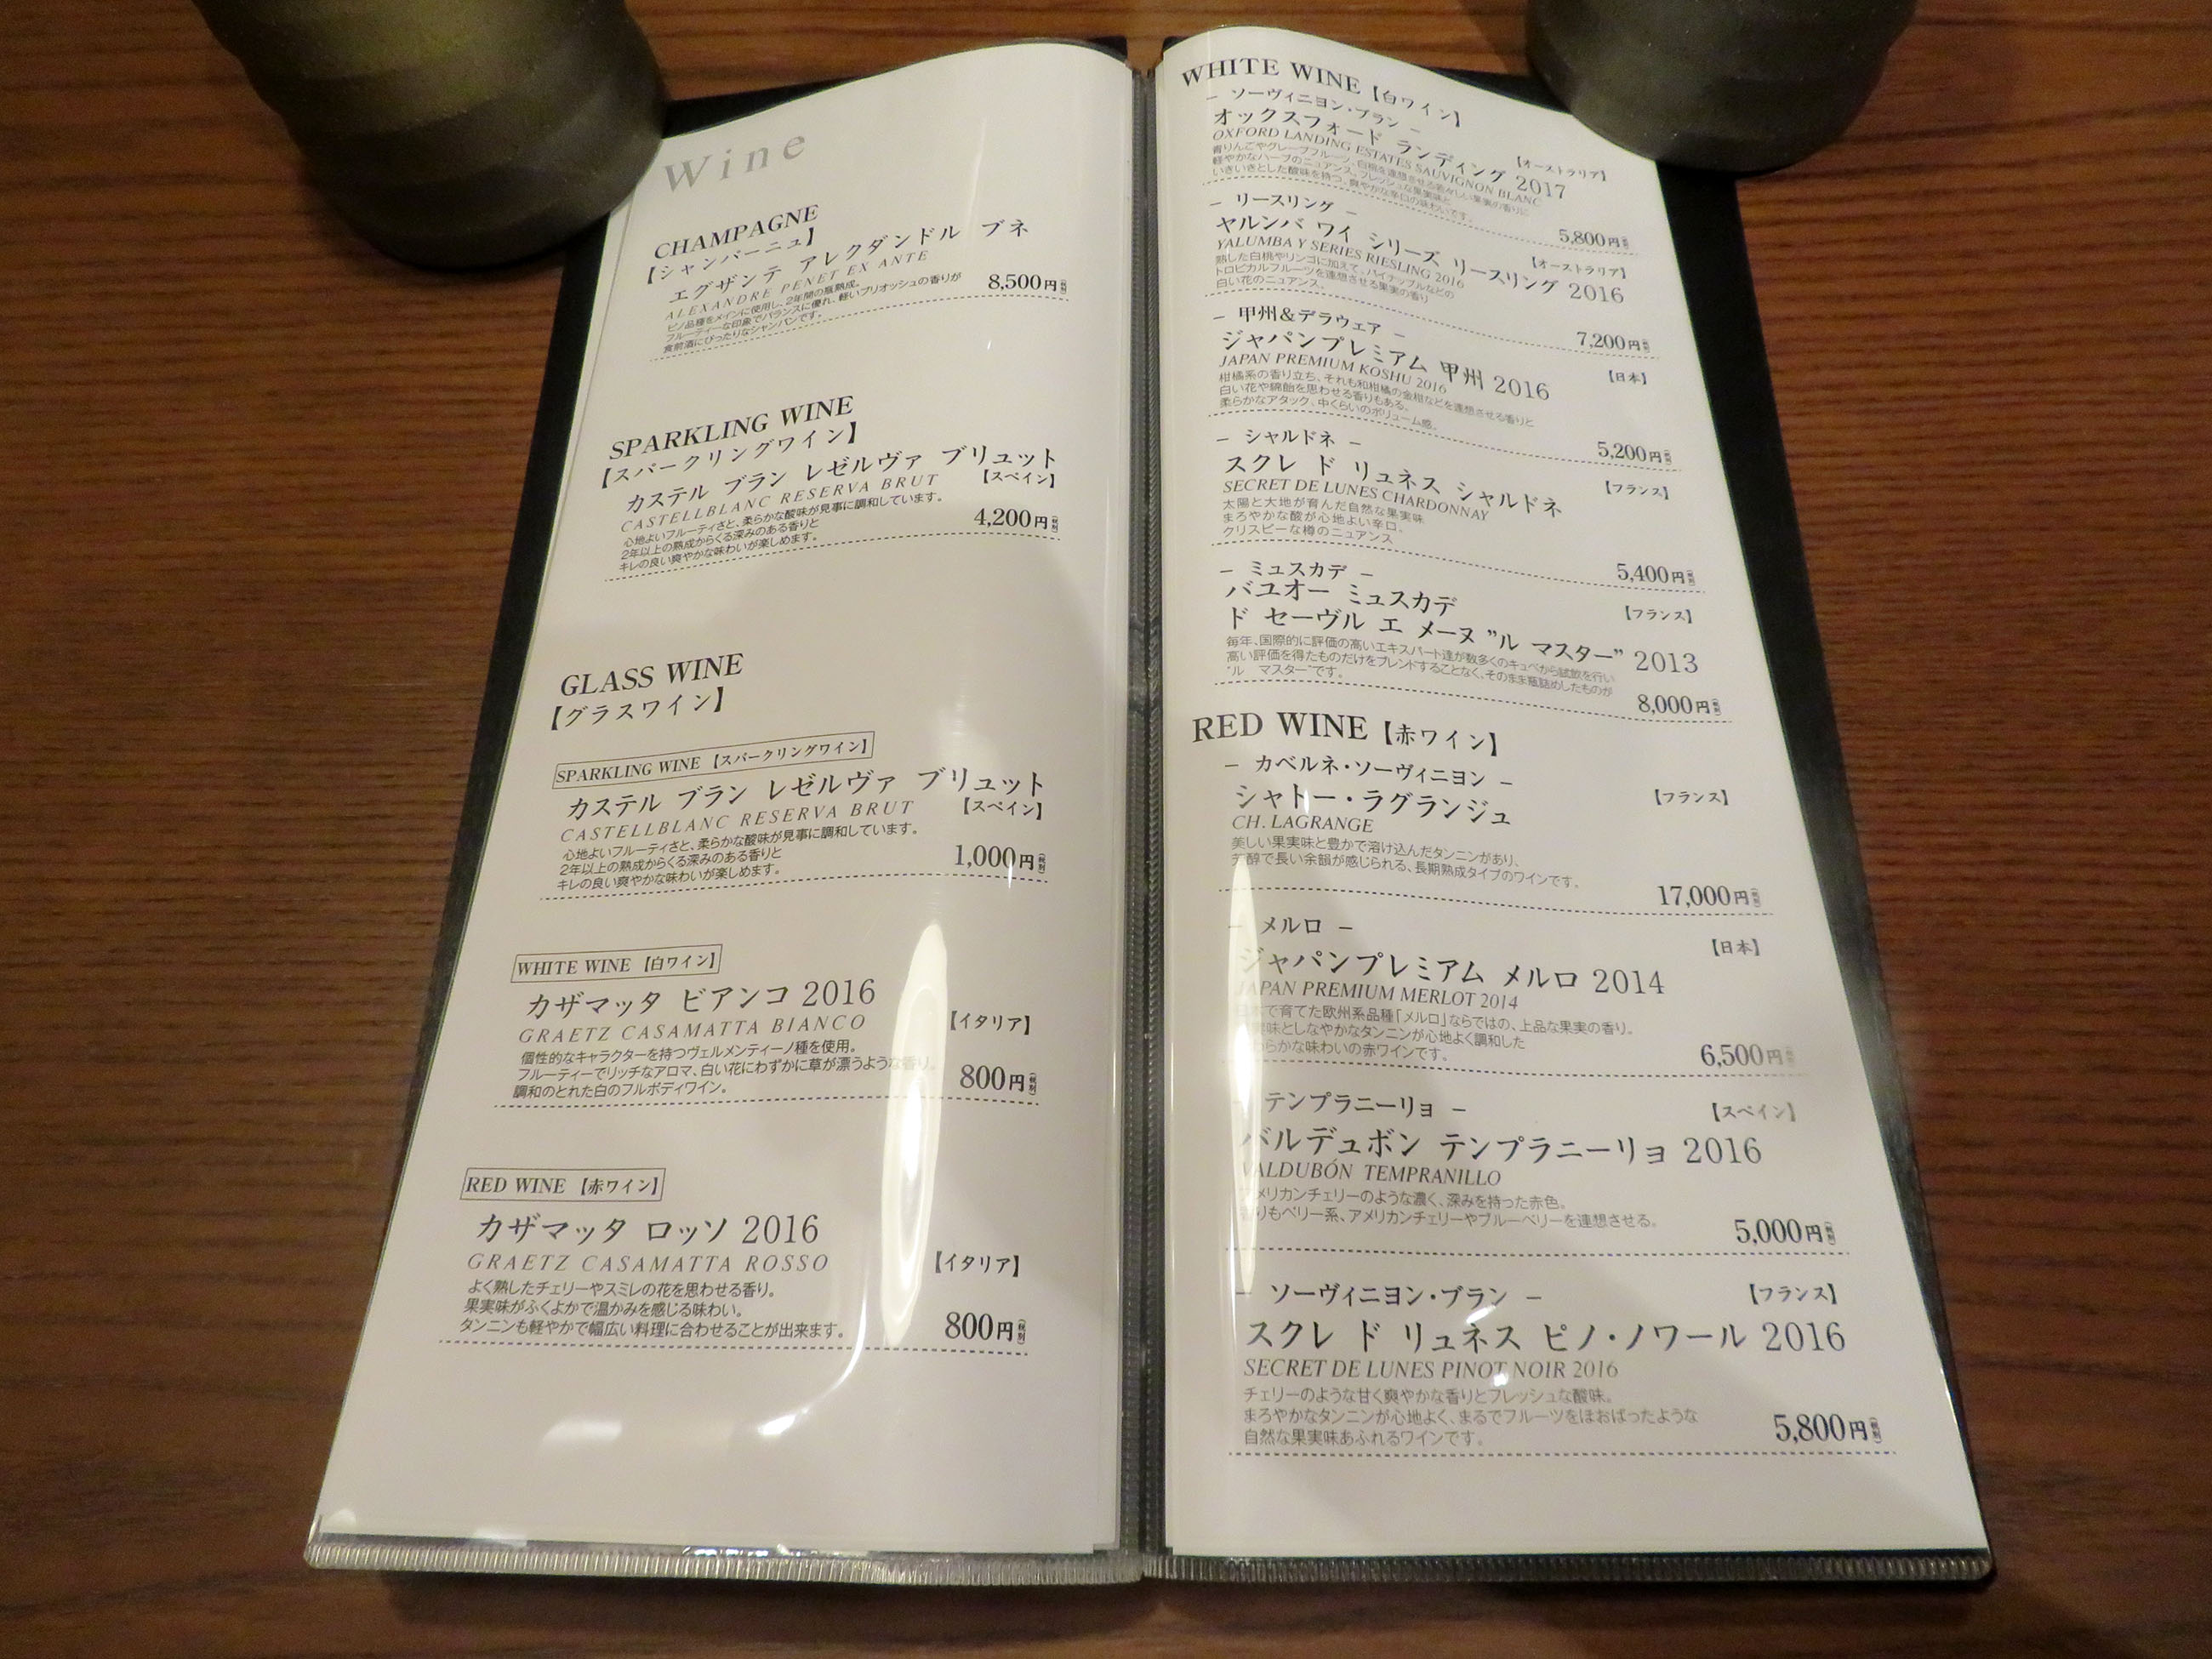 Wine
CHAMPAGNE
【シャンパーニュ】
エグザンテ アレクダンドル プネ
ALEXANDRE PENET EX ANTE
ピノ品種をメインに使用し、2年間の瓶熟成。
フルーティーな印象でバランスに優れ、軽いブリオッシュの香りが
食前酒にぴったりなシャンパンです。
8,500円(税別)
SPARKLING WINE
【スパークリングワイン】
カステル ブラン レゼルヴァ ブリュット
CASTELLBLANC RESERVA BRUT
【スペイン】
心地よいフルーティさと、柔らかな酸味が見事に調和しています。
2年以上の熟成からくる深みのある香りと
キレの良い爽やかな味わいが楽しめます。
4,200円(税別)
GLASS WINE
【グラスワイン】
SPARKLING WINE 【スパークリングワイン】
カステル ブラン レゼルヴァ ブリュット
CASTELLBLANC RESERVA BRUT
【スペイン】
心地よいフルーティさと、柔らかな酸味が見事に調和しています。
2年以上の熟成からくる深みのある香りと
キレの良い爽やかな味わいが楽しめます。
1,000円(税別)
WHITE WINE 【白ワイン】
カザマッタ ビアンコ 2016
GRAETZ CASAMATTA BIANCO
【イタリア】
個性的なキャラクターを持つヴェルメンティーノ種を使用。
フルーティーでリッチなアロマ、白い花にわずかに草が漂うような香り。
調和のとれた白のフルボディワイン。
800円(税別)
RED WINE 【赤ワイン】
カザマッタ ロッソ 2016
GRAETZ CASAMATTA ROSSO
【イタリア】
よく熟したチェリーやスミレの花を思わせる香り。
果実味がふくよかで温かみを感じる味わい。
タンニンも軽やかで幅広い料理に合わせることが出来ます。
800円(税別)
WHITE WINE 【白ワイン】
– ソーヴィニヨン・ブラン –
【オーストラリア】
オックスフォード ランディング 2017
OXFORD LANDING ESTATES SAUVIGNON BLANC
青りんごやグレープフルーツ、白桃を連想させる若々しい果実の香りに
軽やかなハーブのニュアンス。フレッシュな果実味と
いきいきとした酸味を持つ、爽やかな辛口の味わいです。
5,800円(税別)
– リースリング –
【オーストラリア】
ヤルンバ ワイ シリーズ リースリング 2016
YALUMBA Y SERIES RIESLING 2016
熟した白桃やリンゴに加えて、パイナップルなどの
トロピカルフルーツを連想させる果実の香り
白い花のニュアンス。
7,200円(税別)
– 甲州&デラウェア –
【日本】
ジャパンプレミアム 甲州 2016
JAPAN PREMIUM KOSHU 2016
柑橘系の香り立ち、それも和柑橘の金柑などを連想させる香りと
白い花や綿飴を思わせる香りもある。
柔らかなアタック、中くらいのボリューム感。
5,200円(税別)
– シャルドネ –
【フランス】
スクレ ド リュネス シャルドネ
SECRET DE LUNES CHARDONNAY
太陽と大地が育んだ自然な果実味
まろやかな酸が心地よい辛口。
クリスピーな樽のニュアンス
5,400円(税別)
– ミュスカデ –
【フランス】
バユオー ミュスカデ
ド セーヴル エ メーヌ ”ル マスター” 2013
毎年、国際的に評価の高いエキスパート達が数多くのキュベから試飲を行い
高い評価を得たものだけをブレンドすることなく、そのまま瓶詰めしたものが
“ル マスター”です。
8,000円(税別)
RED WINE 【赤ワイン】
– カベルネ・ソーヴィニヨン –
【フランス】
シャトー・ラグランジュ
CH. LAGRANGE
美しい果実味と豊かで溶け込んだタンニンがあり、
芳醇で長い余韻が感じられる、長期熟成タイプのワインです。
17,000円(税別)
– メルロ –
【日本】
ジャパンプレミアム メルロ 2014
JAPAN PREMIUM MERLOT 2014
日本で育てた欧州系品種「メルロ」ならではの、上品な果実の香り。
果実味としなやかなタンニンが心地よく調和した
やわらかな味わいの赤ワインです。
6,500円(税別)
テンプラニーリョ –
【スペイン】
バルデュボン テンプラニーリョ 2016
VALDUBÓN TEMPRANILLO
アメリカンチェリーのような濃く、深みを持った赤色。
香りもベリー系、アメリカンチェリーやブルーベリーを連想させる。
5,000円(税別)
– ソーヴィニヨン・ブラン –
【フランス】
スクレ ド リュネス ピノ・ノワール 2016
SECRET DE LUNES PINOT NOIR 2016
チェリーのような甘く爽やかな香りとフレッシュな酸味。
まろやかなタンニンが心地よく、まるでフルーツをほおばったような
自然な果実味あふれるワインです。
5,800円(税別)